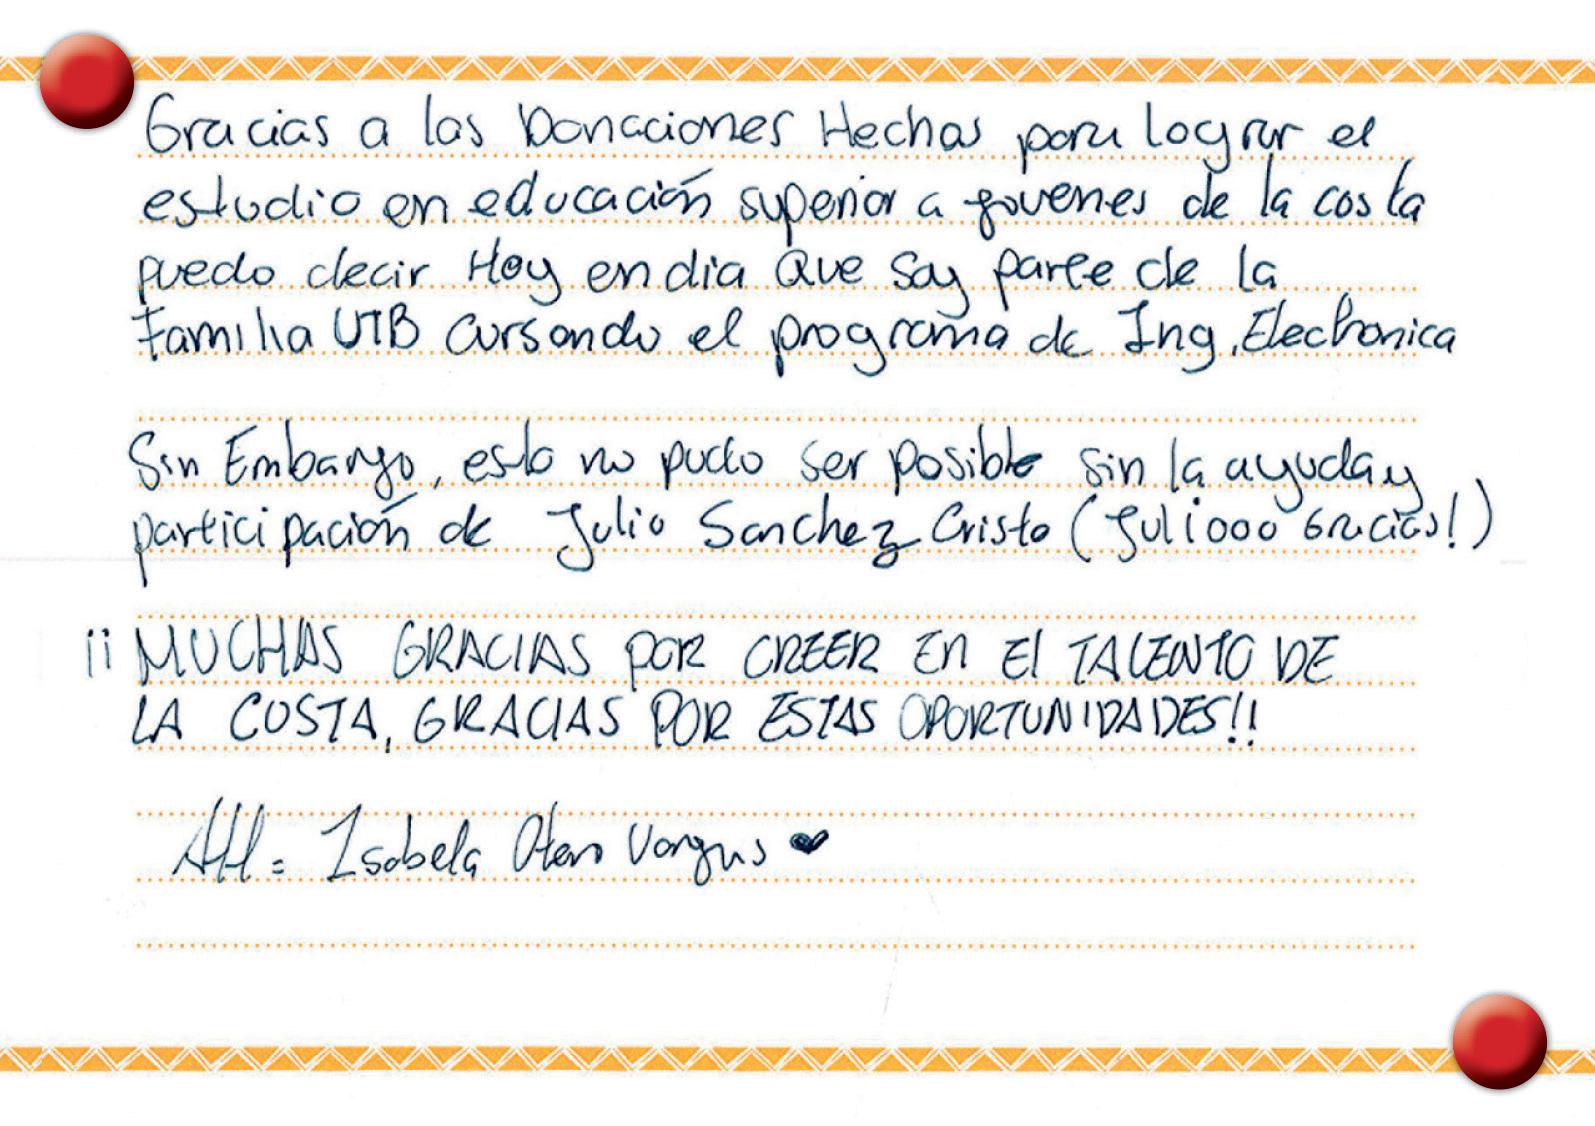 Gracias a las Donaciones Hechas para lograr el
estudio en educación superior a jovenes de la costa
puedo decir Hoy en dia Que soy parte de la
familia UTB cursando el programa de Ing. Electronica
Sin Embargo, esto no pudo ser posible sin la ayuda y
participación de Julio Sanchez Cristo (Juliooo Gracias!)
¡¡ MUCHAS GRACIAS POR CREER En El TALENTO DE
LA COSTA, GRACIAS POR ESTAS OPORTUNIDADES!!
Att = Isabela Otero Vargas ❤